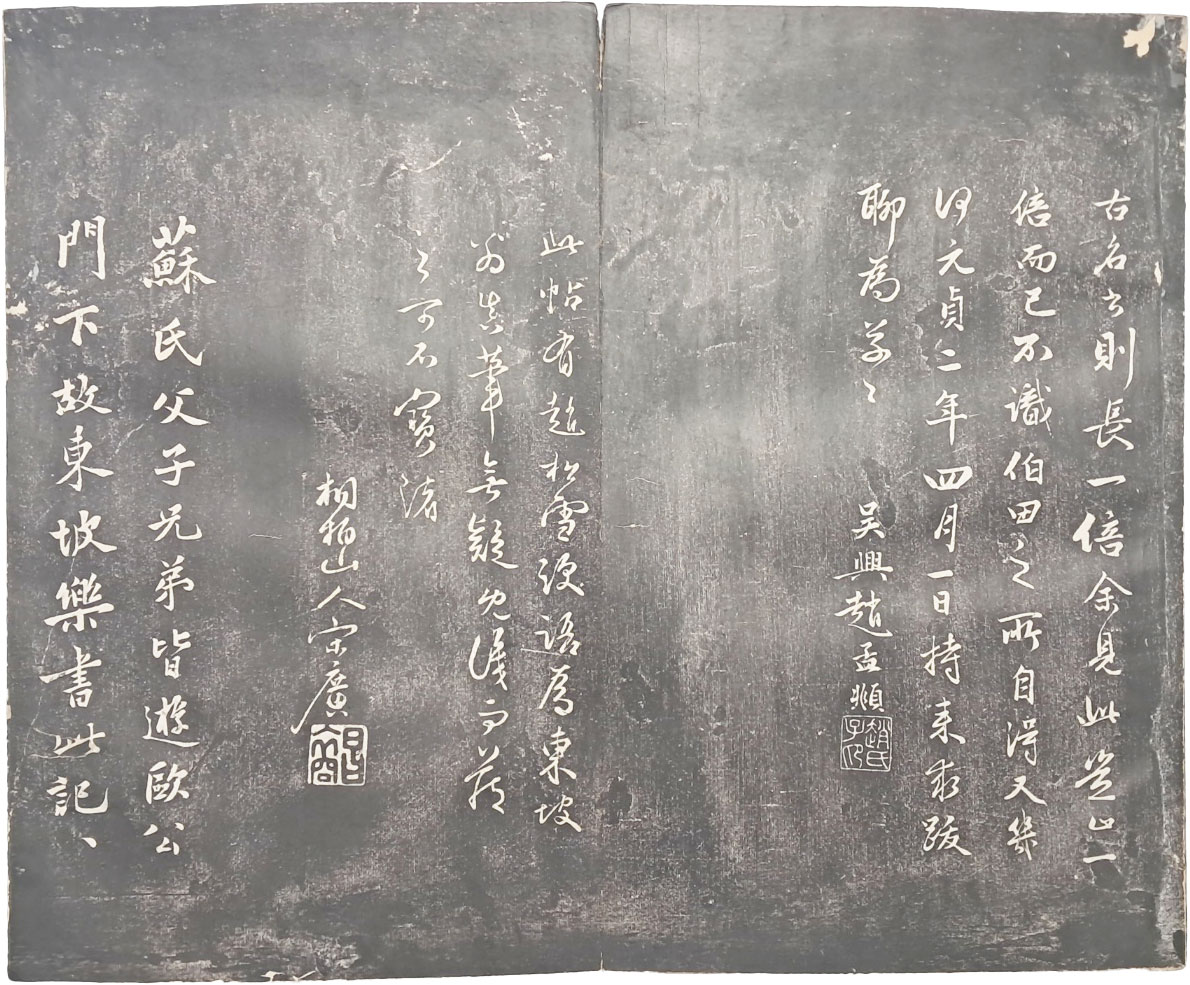 古名書則長一倍余見此豈止一
倍而已不識伯田之所自得又幾
何元貞二年四月一日持来求跋
聊為草々
吴興趙孟頫
趙氏子昂
此帖有趙松雪跋語為東坡
翁真筆無疑允儀而藏
之可不寶諸
桐栢山人宋廣
蘇氏父子兄弟皆遊歐公
門下故東坡樂書此記、